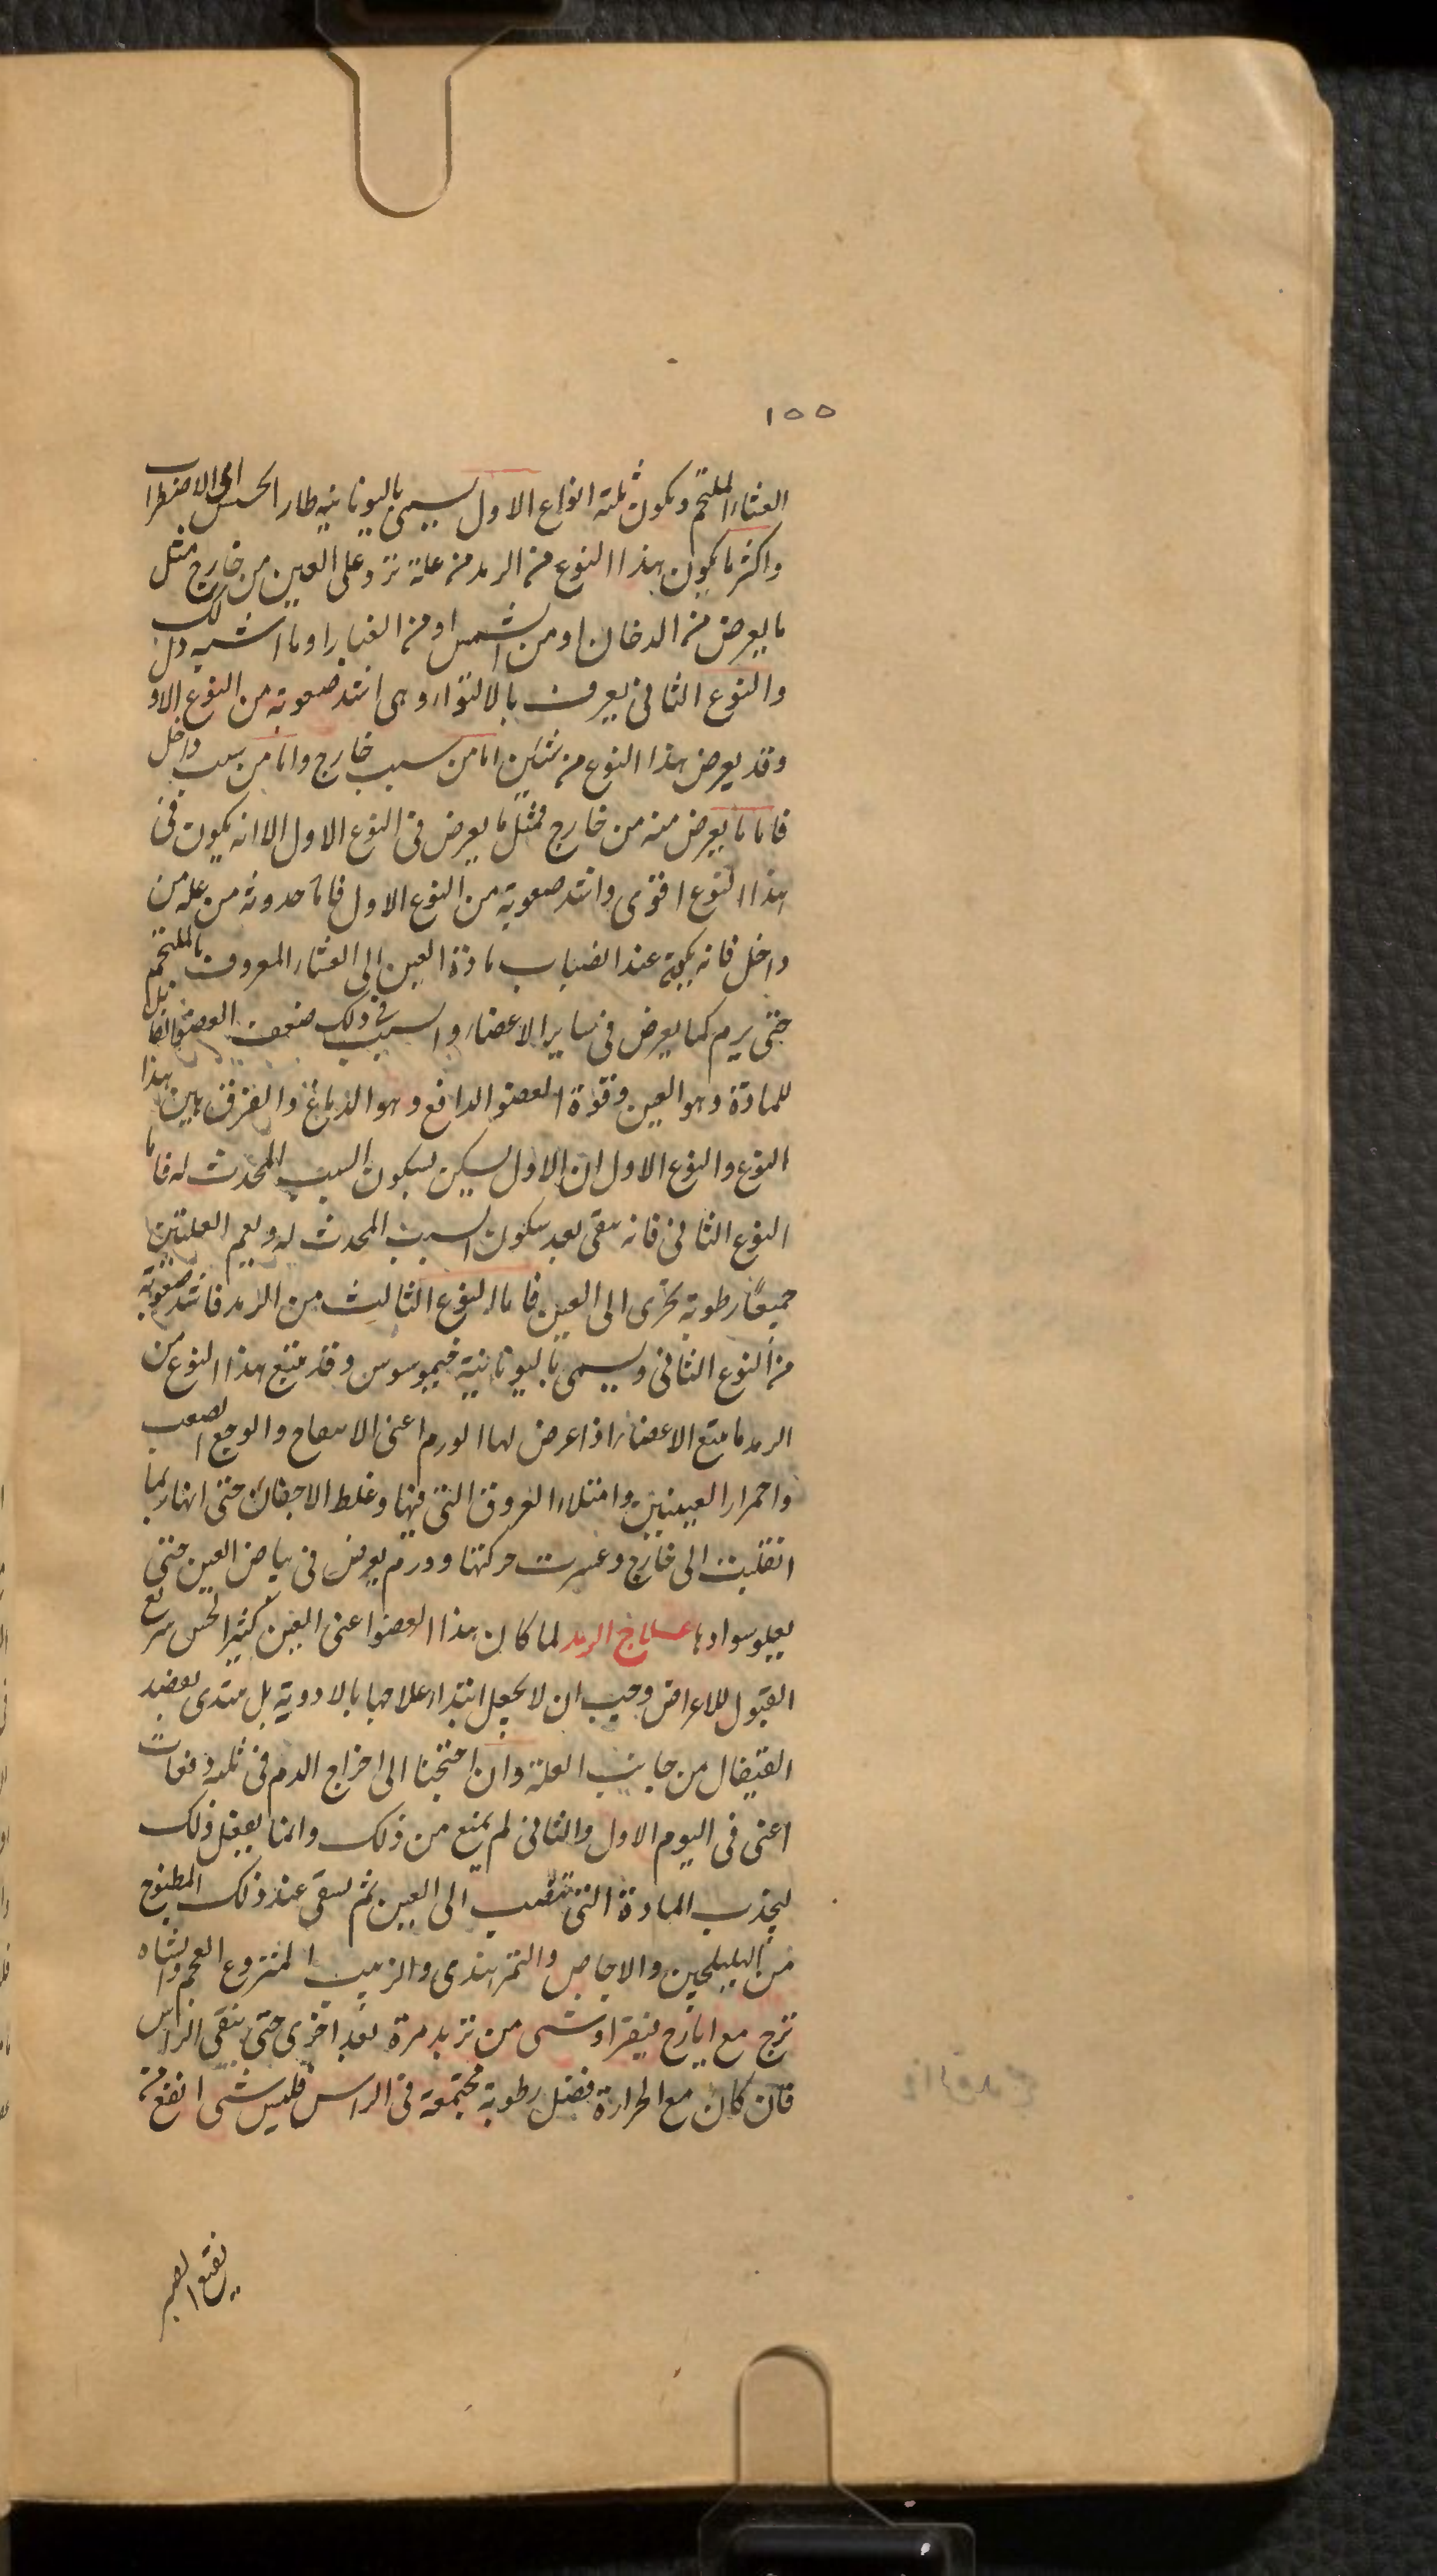 ١٥٥
الغشاء الملتحم ويكون ثلثة انواع الاول يسمى باليونانية طارالحسيس اى الاضطراب
واكثر ما يكون هذا النوع من الرمد من علة ترد على العين من خارج مثل
ما يعرض من الدخان او من الشمس او من الغبار او ما اشبه ذلك
والنوع الثانى يعرف بالالتواء وهى اشد صعوبة من النوع الاو
وقد يعرض هذا النوع من شيئين اما من سبب خارج واما من سبب داخل
فاما ما يعرض منه من خارج فمثل ما يعرض فى النوع الاول الا انه يكون فى
هذا النوع اقوى واشد صعوبة من النوع الاول فاما حدوثه من علة من
داخل فانه يكون عند انصباب مادة العين الى الغشاء المعروف بالملتحم
حتى يرم كما يعرض فى ساير الاعضاء والسبب فى ذلك ضعف العضو القابل
للمادة وهو العين وقوة العضو الدافع وهو الدماغ والفرق بين هذا
النوع والنوع الاول ان الاول يسكن بسكون السبب المحدث له فاما
النوع الثانى فانه يبقى بعد سكون السبب المحدث له ويعم العلتين
جميعًا رطوبة تجرى الى العين فاما النوع الثالث من الرمد فاشد صعوبة
من النوع الثانى ويسمى باليونانية خيموسوس وقد يتبع هذا النوع من
الرمد ما يتبع الاعضاء اذا عرض لها الورم اعنى الانتفاخ والوجع الصعب
واحمرار العينين وامتلاء العروق التى فيها وغلظ الاجفان حتى انها ربما
انقلبت الى خارج وعسرت حركتها وورم يعرض فى بياض العين حتى
يعلو سوادها علاج الرمد لما كان هذا العضو اعنى العين كثير الحس سريع
القبول للاعراض وجب ان لا يجعل ابتداء علاجها بالادوية بل يبتدى بفصد
القيفال من جانب العلة وان احتجنا الى اخراج الدم فى ثلثة دفعات
اعنى فى اليوم الاول والثانى لم يمنع من ذلك وانما يفعل ذلك
ليجذب المادة التى تنصب الى العين ثم يسقى عند ذلك المطبوخ
من الهليلجين والاجاص والتمر هندى والزبيب المنزوع العجم والشاه
ترج مع ايارج فيقرا وشى من تربد مرة بعد اخرى حتى ينقى الراس
فان كان مع الحرارة فضل رطوبة مجتمعة فى الراس فليس شى انفع من
نقيع الصبر